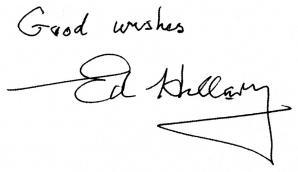 Good wishes
Ed Hillary